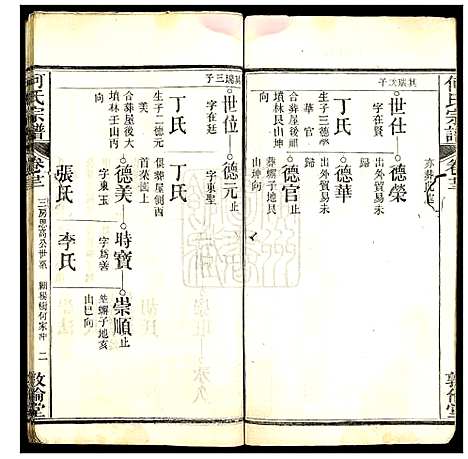 何氏宗譜
卷
亦葬此墓
其瑞次子
世仕
德榮
出外貿易已
歸
丁氏
合葬屋後祖
墳林艮山坤
生子三德承
華 官
德華
出外貿易已
歸
德官止
葬螺子地艮
山坤向
其瑞三子
世位
字在廷
德元止
字東聖
丁氏
生子二德元
美
合葬屋後大
墳林壬山丙
丁氏
葬屋側西
首菜園上
德美
字東玉
時寶
字為善
崇順止
葬螺子地亥
山巳向
張氏
李氏
何氏宗譜
卷
三房思高公世系
楊樹何家冲
二
敦倫堂
敦倫堂